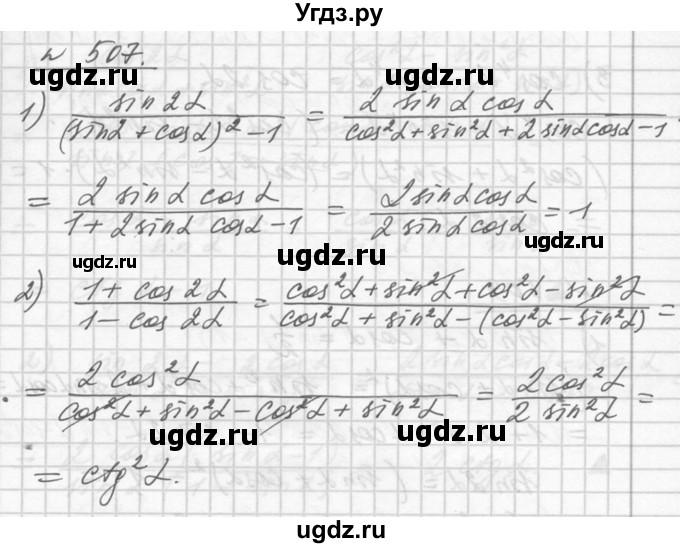 Угдз.ру
№ 507.
ugdz.ru ugdz.ru ugdz.ru
1) sin2α / ((sinα + cosα)² − 1) = 2 sinα cosα / (cos²α + sin²α + 2 sinα cosα − 1)
= 2 sinα cosα / (1 + 2 sinα cosα − 1) = 2 sinα cosα / (2 sinα cosα) = 1
ugdz.ru ugdz.ru
ugdz.ru
2) (1 + cos 2α) / (1 − cos 2α) = (cos²α + sin²α + cos²α − sin²α) / (cos²α + sin²α − (cos²α − sin²α)) =
= 2 cos²α / (cos²α + sin²α − cos²α + sin²α) = 2 cos²α / (2 sin²α) =
ugdz.ru ugdz.ru
= ctg²α.
ugdz.ru